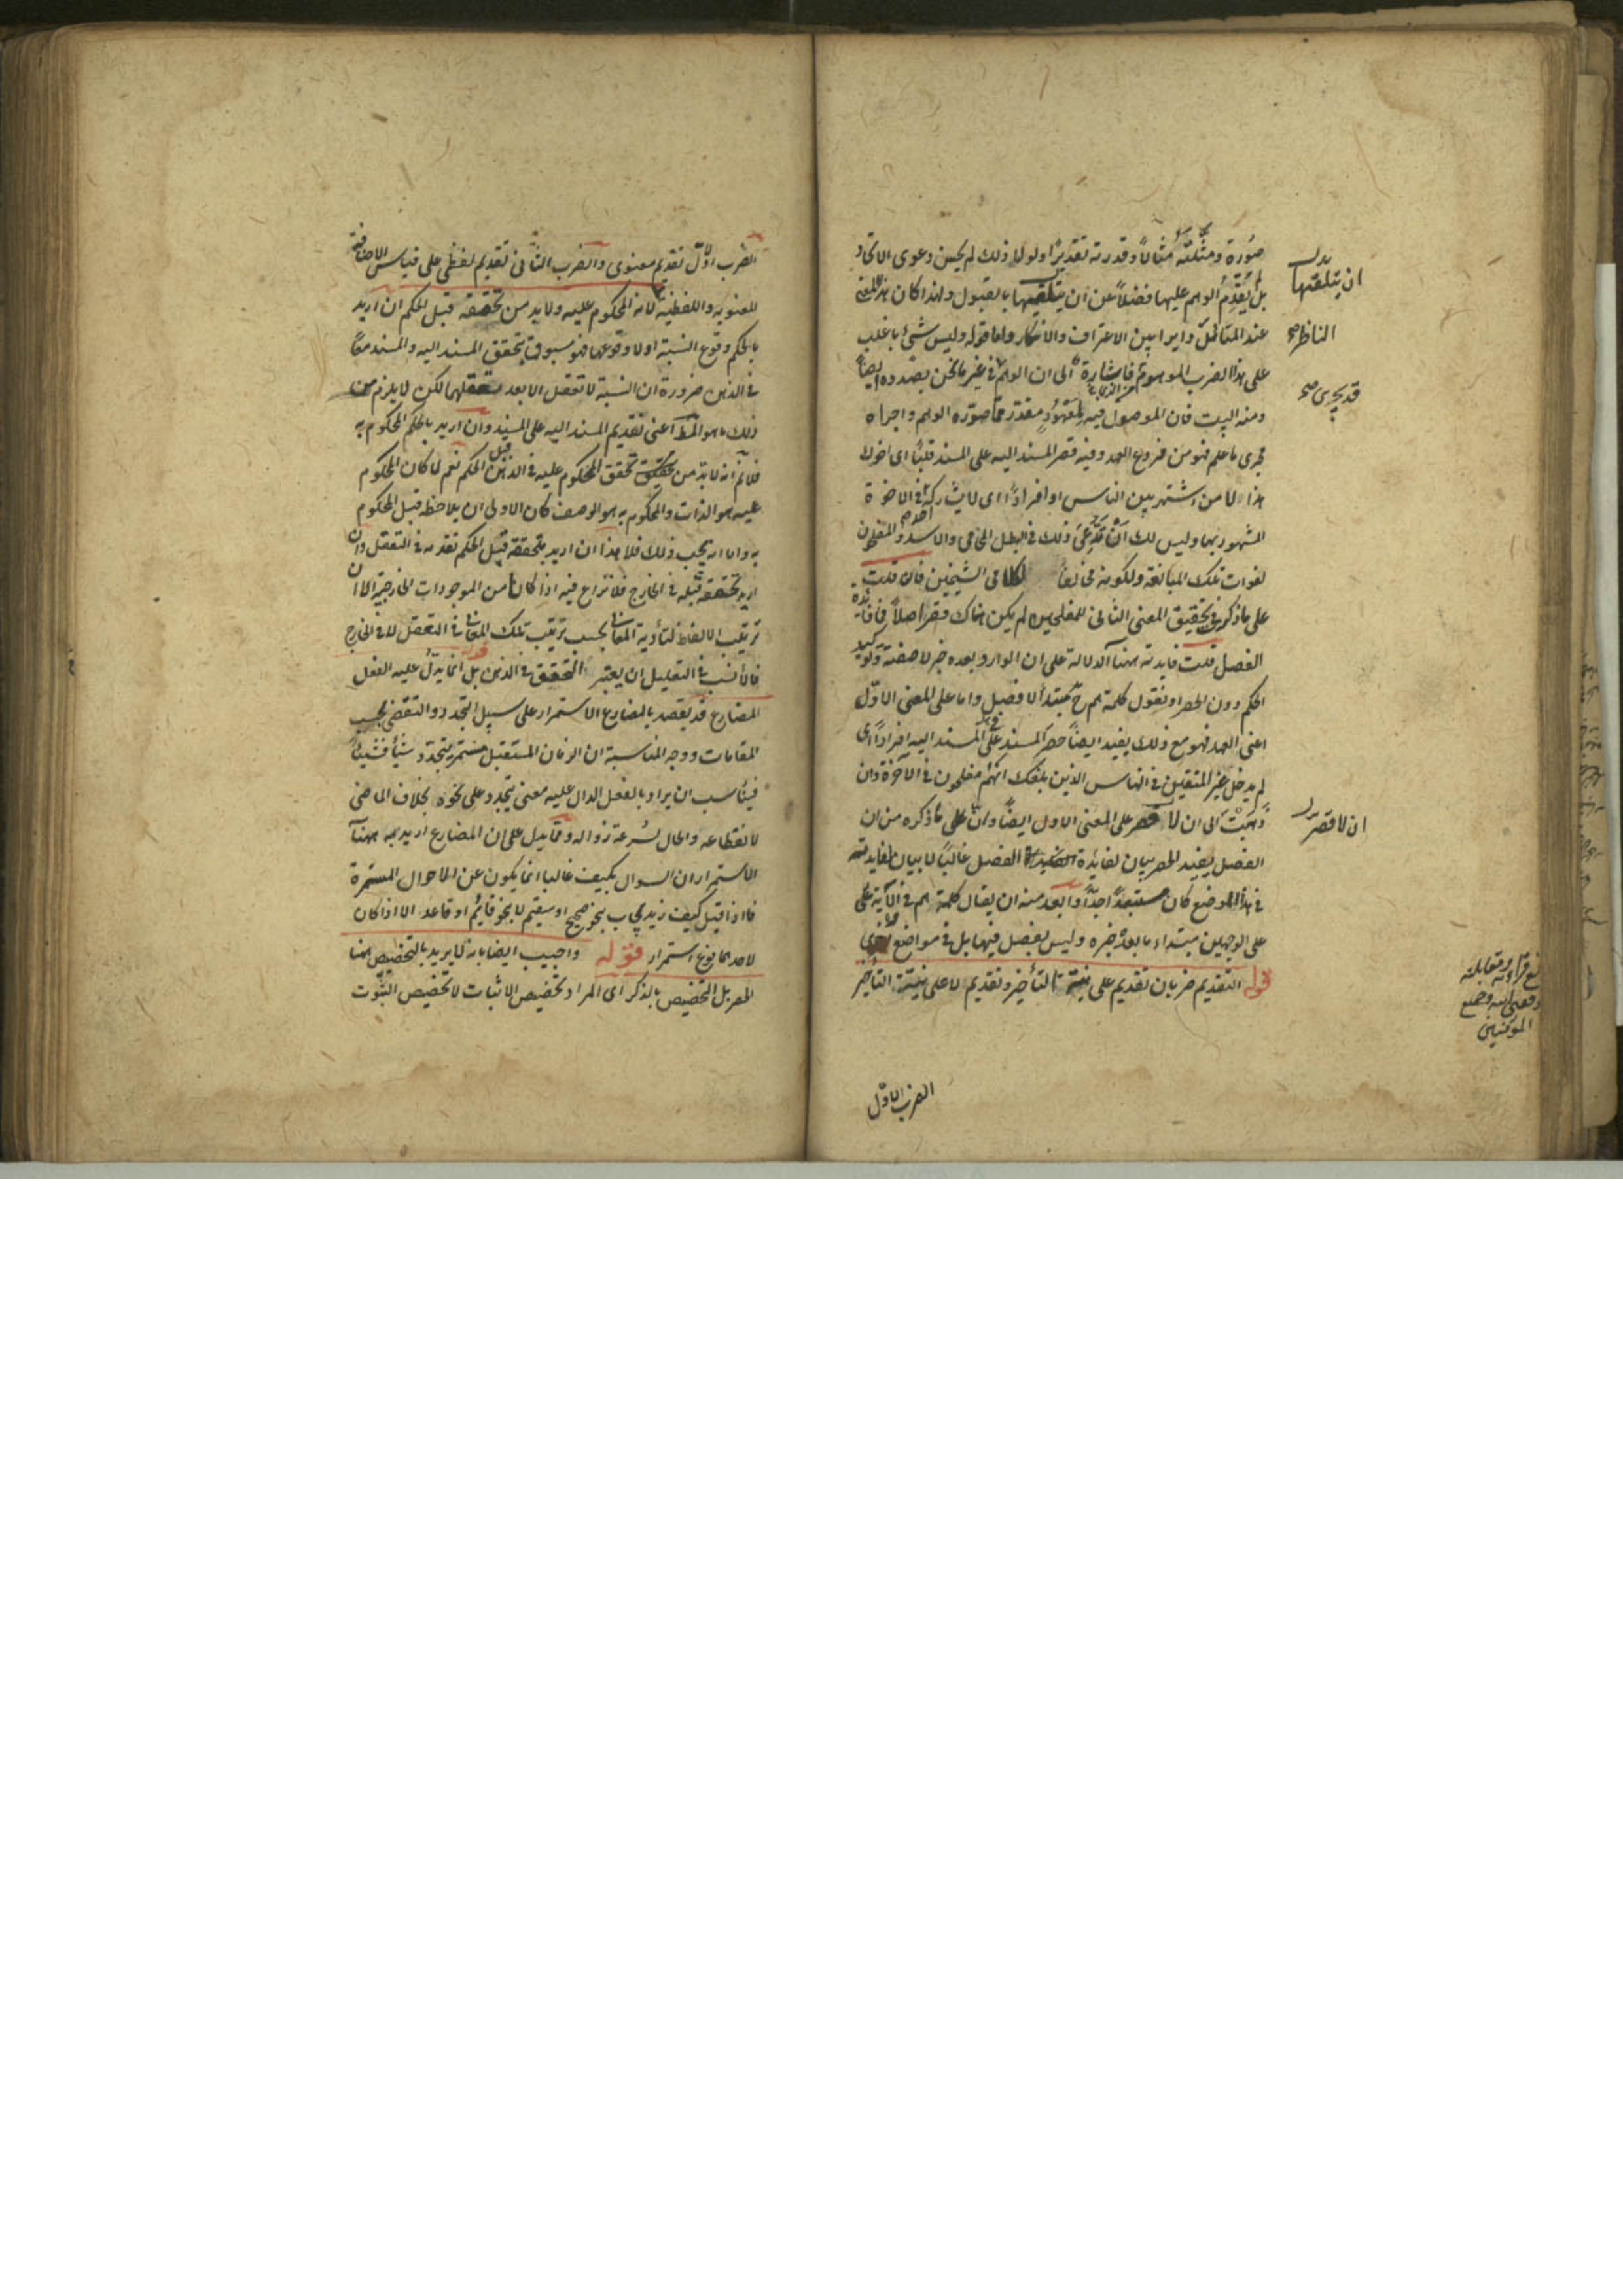 صورة ومثلته مثالا وقدرته تقديرا ولولا ذلك لم يحسن دعوى الاتحاد
بل لم يقدم الوهم عليها فضلا عن ان يتلقيها بالقبول ولهذا كان هذا المعنى
عند المتأمل دايرا بين الاعتراف والانكار واما قوله وليس شئ باغلب
على هذا الضرب الموهوم فاشارة الى ان الوهم في غير ما نحن بصدده ايضا
ومنه البيت فان الموصول فيه لمعهود مقدر مما صوره الوهم واجراه
مجرى ما علم فهو من فروع العهد وفيه قصر المسند اليه على المسند قلبا اى اخوك
هذا لا من اشتهر بين الناس او افرادا اى لا يشاركه في الاخوة
المشهور بها وليس لك ان تدعى ذلك في البطل المحامى والاسد والمفلحون
لفوات تلك المبالغة ولكونه مخالفا لكلامى الشيخين فان قلت
على ما ذكر في تحقيق المعنى الثانى للمفلحين لم يكن هناك قصر اصلا فما فائدة
الفصل قلت فايدته ههنا الدلالة على ان الوارد بعده خبر لا صفة وتوكيد
الحكم دون الحصر او نقول كلمة هم ح مبتدأ لا فصل واما على المعنى الاول
اعنى العهد فهو مع ذلك يفيد ايضا حصر المسند على المسند اليه افرادا اى
لم يدخل غير المتقين في الناس الذين بلغك انهم مفلحون في الآخرة وان
ذهبت الى ان لا قصر على المعنى الاول ايضا وان على ما ذكره من ان
الفصل يفيد الحصر بيان لفائدة الفصل غالبا لا بيان لفايدته
في هذا الموضع كان مستبعدا جدا وابعد منه ان يقال كلمة هم في الآية على
على الوجهين مبتداء ما بعده خبره وليس بفصل فيها بل في مواضع اخرى
قوله التقديم ضربان تقديم على نية التأخير وتقديم لا على نية التأخير
الضرب الاول
ان يتلقتها بدل
الناظر صح
قد يجرى صح
ان لا قصر بدل
الضرب الاول تقديم معنوى والضرب الثانى تقديم لفظى على قياس الاضافة
المعنوية واللفظية لانه المحكوم عليه ولابد من تحققه قبل الحكم ان اريد
بالحكم وقوع النسبة اولا وقوعها فهو مسبوق بتحقق المسند اليه والمسند معا
في الذهن ضرورة ان النسبة لا تعقل الا بعد تعقلهما لكن لا يلزم من
ذلك ما هو المط اعنى تقديم المسند اليه على المسند وان اريد بالحكم المحكوم به
فلا نم انه لابد من تحقق المحكوم عليه في الذهن قبل الحكم نعم لما كان المحكوم
عليه هو الذات والمحكوم به هو الوصف كان الاولى ان يلاحظ قبل المحكوم
به واما انه يجب ذلك فلا هذا ان اريد بتحققه قبل الحكم تقدمه في التعقل وان
اريد تحققه قبله في الخارج فلا نزاع فيه اذا كانا من الموجودات الخارجية الا ان
ترتيب الالفاظ لتأدية المعانى بحسب ترتيب تلك المعانى في التعقل لا في الخارج
فالانسب في التعليل ان يعتبر التحقق في الذهن قوله بل انما يدل عليه الفعل
المضارع قد يقصد بالمضارع الاستمرار على سبيل التجدد والتقضى بحسب
المقامات ووجه المناسبة ان الزمان المستقبل مستمر يتجدد شيئا فشيئا
فيناسب ان يراد بالفعل الدال عليه معنى يتجدد على نحوه بخلاف الماضى
لانقطاعه والحال لسرعة زواله ومما يدل على ان المضارع اريد به ههنا
الاستمرار ان السوال بكيف غالبا انما يكون عن الاحوال المستمرة
فاذا قيل كيف زيد يجاب بنحو صحيح او سقيم لا بنحو قايم او قاعد الا اذا كان
لاحدهما نوع استمرار قوله واجيب ايضا بانه لا يريد بالتخصيص ههنا
الحصر بل التخصيص بالذكر اى المراد تخصيص الاثبات لا تخصيص الثبوت